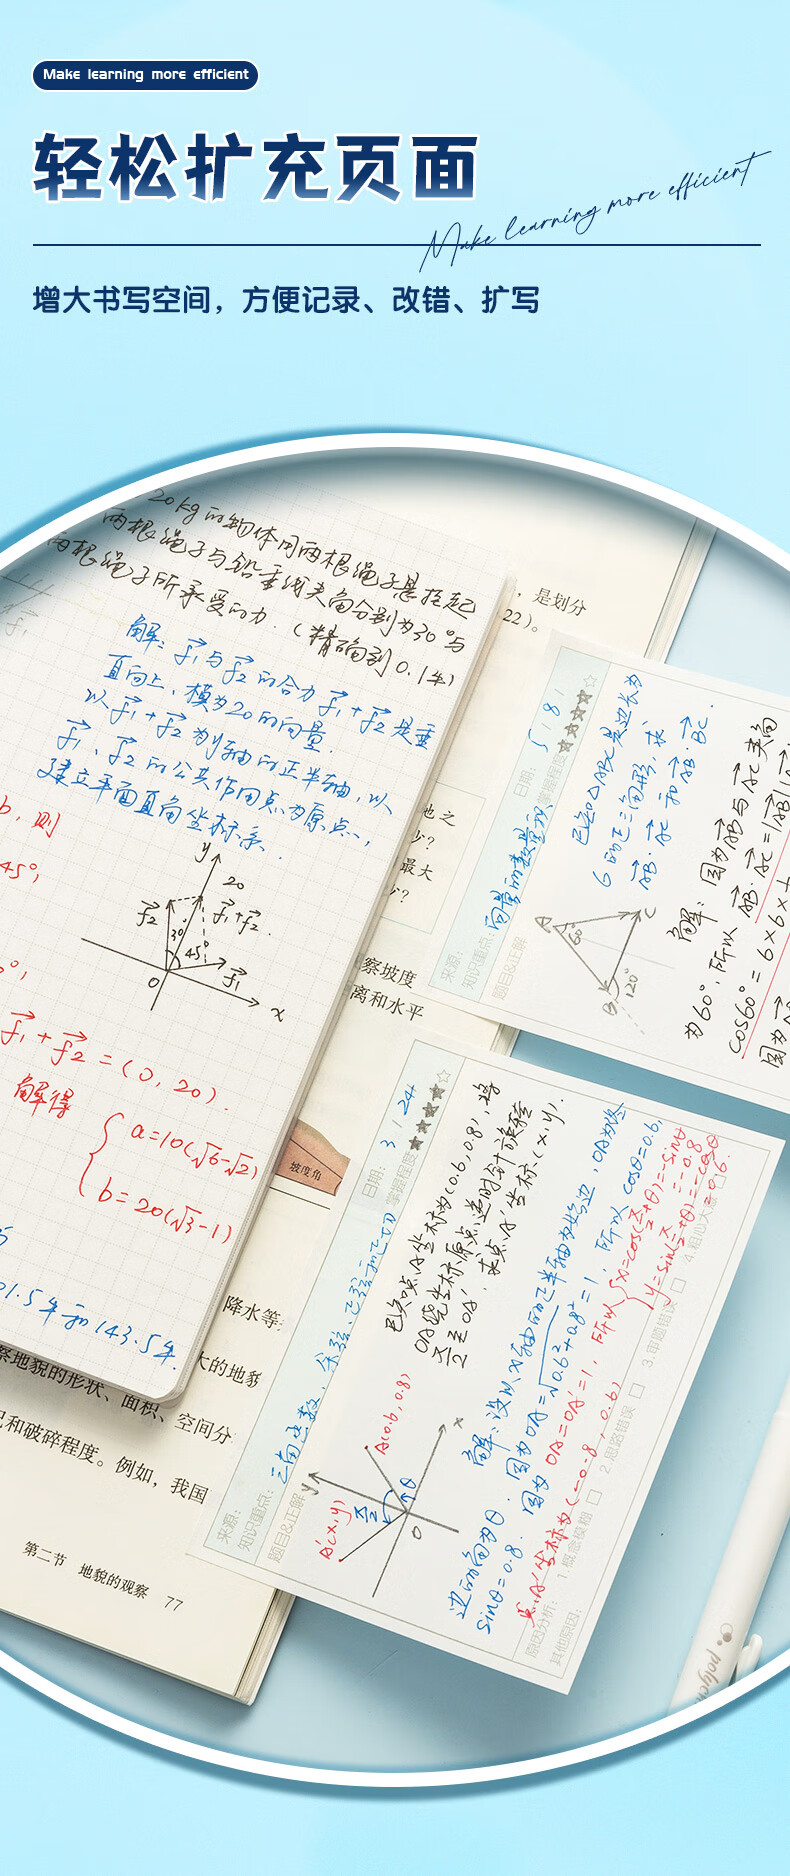 Make learning more efficient
轻松扩充页面
Make learning more efficient
增大书写空间，方便记录、改错、扩写
20kg的物体用两根绳子悬挂起
两根绳子与铅垂线夹角分别为30°与
两根绳子所承受的力.（精确到0.1牛）
解：f1与f2的合力f1+f2是垂
直向上，模为20的向量.
以f1+f2为y轴的正半轴，以
f1、f2的公共作用点为原点，
建立平面直角坐标系.
b，则
45°，
y
20
f2
f1+f2
30°
45°
f1
0
x
f1+f2=(0,20).
解得
a=10(√6-√2)
b=20(√3-1)
01.5牛和143.5牛.
，是划分
22)。
也之
少?
最大
?
察坡度
离和水平
坡度角
降水等
大的地貌
察地貌的形状、面积、空间分
和破碎程度。例如，我国
第二节 地貌的观察 77
来源：
日期： 5 / 8 /
知识重点：向量的数量积
掌握程度★★★★☆
题目&正解
已知△ABC是边长为
6的正三角形，求
AB·AC和AB·BC.
A
60°
B
120°
C
解：因为AB与AC夹向
为60°，所以AB·AC=|AB||A
cos60°=6×6×
因为
来源：
日期： 3 / 24
知识重点：三角函数，余弦、正弦和正切
掌握程度★★★★☆
题目&正解
已知点A坐标为(0.6,0.8)，将
OA绕坐标原点逆时针旋转
π/2至OA'，求点A'坐标(x,y).
y
x
A(0.6,0.8)
A'(x,y)
π/2
θ
0
解：设以x轴的正半轴为始边，OA为终
边的角为θ，因为OA=√0.6²+0.8²=1，所以cosθ=0.6，
sinθ=0.8.因为OA=OA'=1，所以
x=cos(π/2+θ)=-sinθ=-0.8
y=sin(π/2+θ)=
点A'坐标为(-0.8，0.6)
原因分析： 1.概念模糊 □ 2.思路错误 □ 3.审题错误 □ 4.粗心大意 □
其他原因：